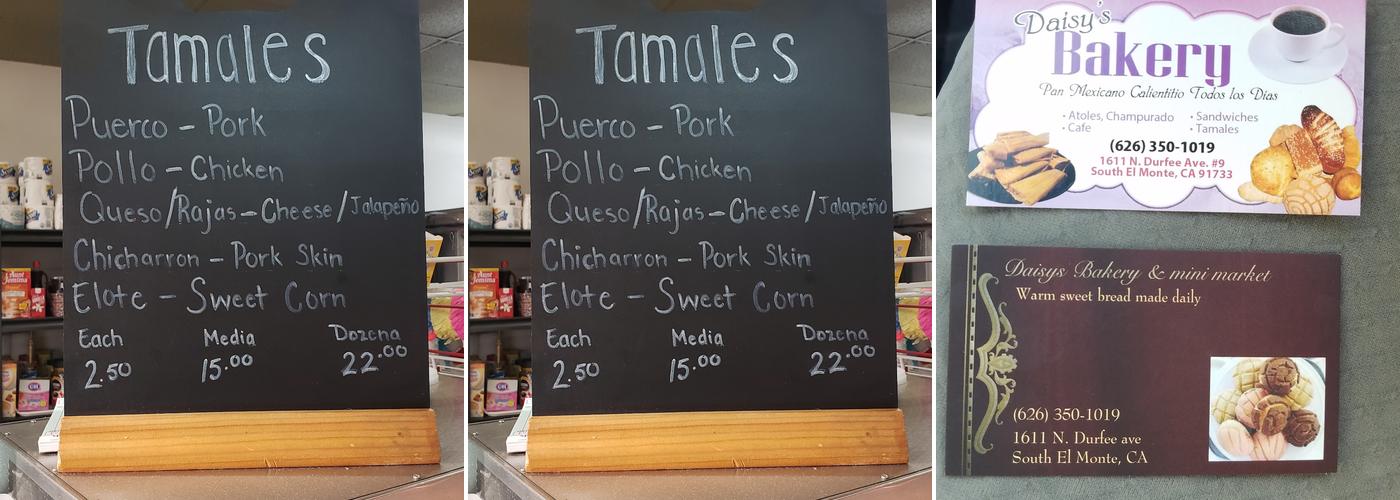 Tamales
Puerco - Pork
Pollo - Chicken
Queso/Rajas - Cheese/Jalapeño
Chicharron - Pork Skin
Elote - Sweet Corn
Each Media Dozena
2.50 15.00 22.00
Aunt Jemima
Tamales
Puerco - Pork
Pollo - Chicken
Queso/Rajas - Cheese/Jalapeño
Chicharron - Pork Skin
Elote - Sweet Corn
Each Media Dozena
2.50 15.00 22.00
Aunt Jemima
Daisy's
Bakery
Pan Mexicano Calientitio Todos los Dias
• Atoles, Champurado • Sandwiches
• Cafe • Tamales
(626) 350-1019
1611 N. Durfee Ave. #9
South El Monte, CA 91733
Daisys Bakery & mini market
Warm sweet bread made daily
(626) 350-1019
1611 N. Durfee ave
South El Monte, CA